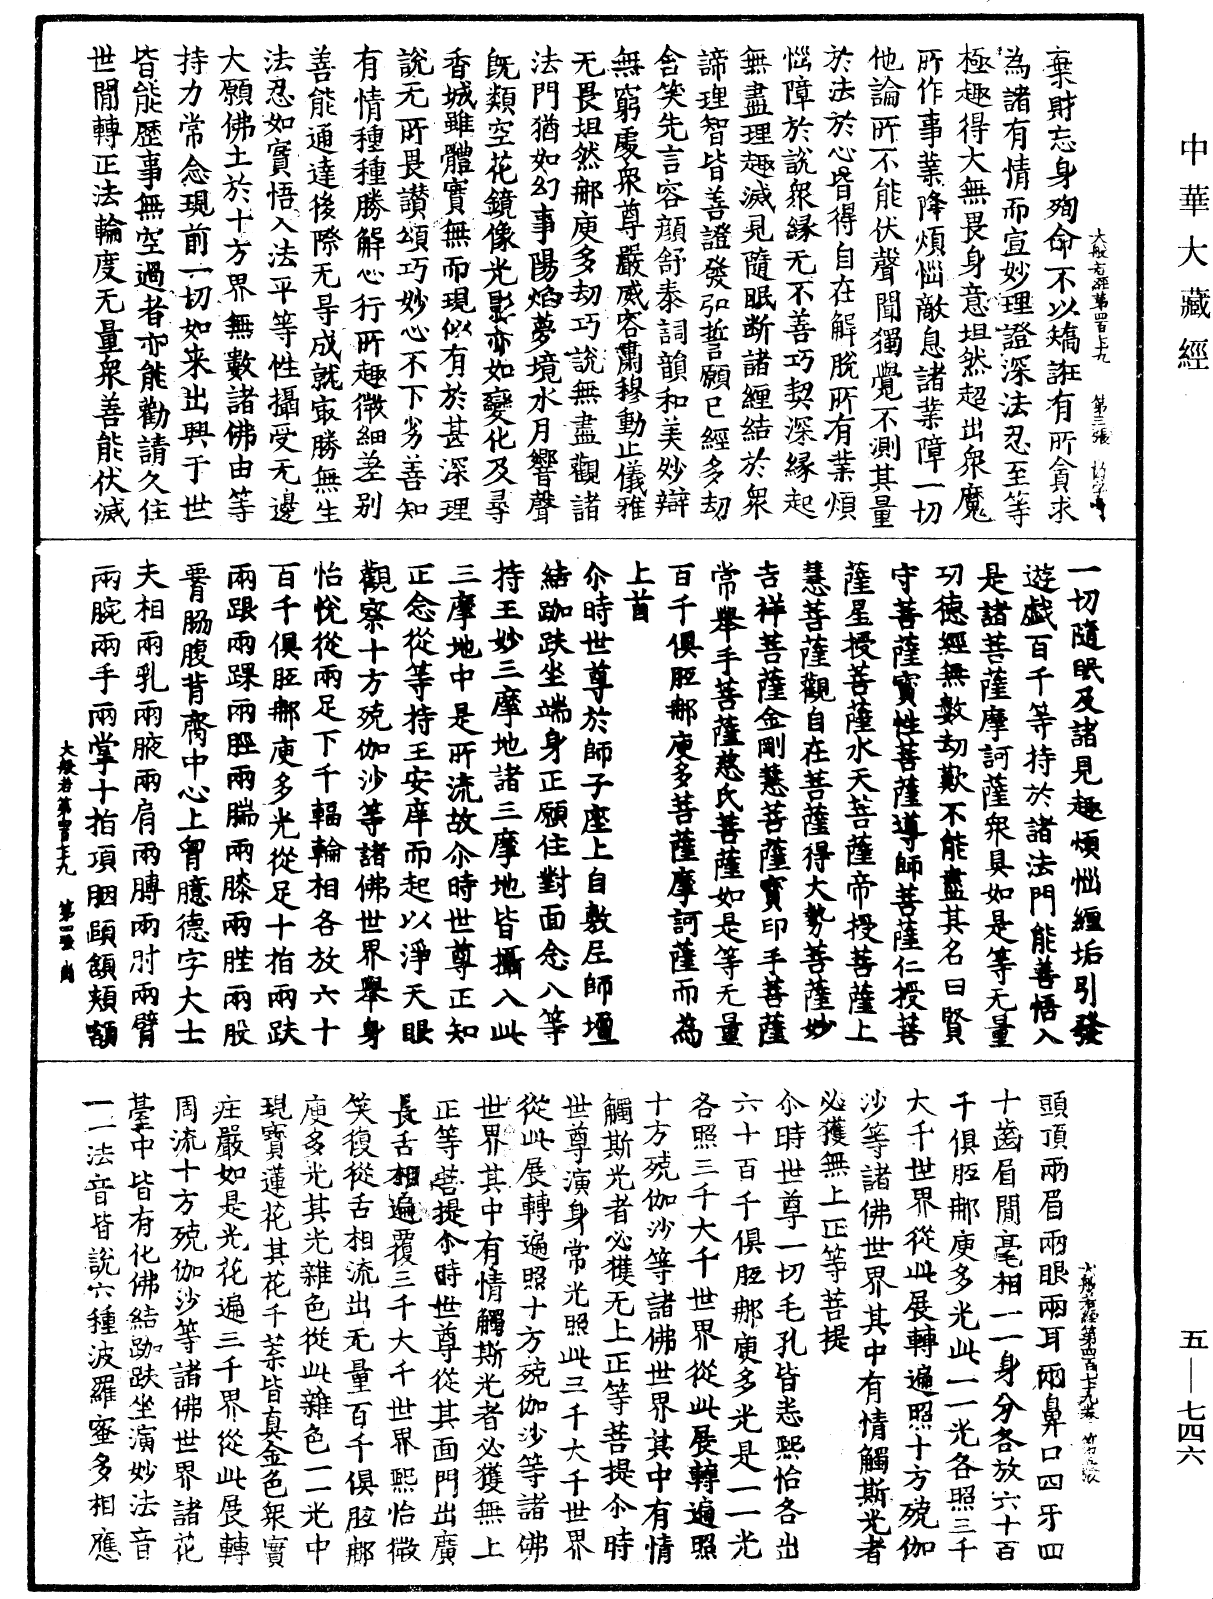 中華大藏經
大般若經第四百七十九 第三張
棄財忘身殉命不以矯誑有所貪求
為諸有情而宣妙理證深法忍至等
極趣得大無畏身意坦然超出衆魔
所作事業降煩惱敵息諸業障一切
他論所不能伏聲聞獨覺不測其量
於法於心皆得自在解脫所有業煩
惱障於說衆緣无不善巧契深緣起
無盡理趣滅見隨眠断諸纏結於衆
諦理智皆善證發弘誓願已經多劫
含笑先言容顔舒泰詞韻和美妙辯
無窮處衆尊嚴威容肅穆動止儀雅
无畏坦然那庾多劫巧說無盡觀諸
法門猶如幻事陽焰夢境水月響聲
旣類空花鏡像光影亦如變化及尋
香城雖體實無而現似有於甚深理
說无所畏讃頌巧妙心不下劣善知
有情種種勝解心行所趣微細差别
善能通達後際无㝵成就㝡勝無生
法忍如實悟入法平等性攝受无邊
大願佛土於十方界無數諸佛由等
持力常念現前一切如来出興于世
皆能歷事無空過者亦能勸請久住
世間轉正法輪度无量衆善能伏滅
一切隨眠及諸見趣煩惱纏垢引發
遊戲百千等持於諸法門能善悟入
是諸菩薩摩訶薩衆具如是等无量
功德經無數劫歎不能盡其名曰賢
守菩薩寶性菩薩導師菩薩仁授菩
薩星授菩薩水天菩薩帝授菩薩上
慧菩薩觀自在菩薩得大勢菩薩妙
吉祥菩薩金剛慧菩薩寶印手菩薩
常舉手菩薩慈氏菩薩如是等无量
百千俱胝那庾多菩薩摩訶薩而為
上首
尒時世尊於師子座上自敷尼師壇
結跏趺坐端身正願住對面念入等
持王妙三摩地諸三摩地皆攝入此
三摩地中是所流故尒時世尊正知
正念從等持王安庠而起以淨天眼
觀察十方殑伽沙等諸佛世界舉身
怡悅從兩足下千輻輪相各放六十
百千俱胝那庾多光從足十指兩趺
兩跟兩踝兩脛兩腨兩膝兩䏶兩股
𦝫脇腹背齊中心上胷臆德字大士
夫相兩乳兩腋兩肩兩膊兩肘兩臂
兩腕兩手兩掌十指項胭頤頷頰額
大般若第四百七十九 第四張
大般若經第四百七十九卷
頭頂兩眉兩眼兩耳兩鼻口四牙四
十齒眉間毫相一一身分各放六十百
千俱胝那庾多光此一一光各照三千
大千世界從此展轉遍照十方殑伽
沙等諸佛世界其中有情觸斯光者
必獲無上正等菩提
尒時世尊一切毛孔皆悉熙怡各出
六十百千俱胝那庾多光是一一光
各照三千大千世界從此展轉遍照
十方殑伽沙等諸佛世界其中有情
觸斯光者必獲无上正等菩提尒時
世尊演身常光照此三千大千世界
從此展轉遍照十方殑伽沙等諸佛
世界其中有情觸斯光者必獲無上
正等菩提尒時世尊從其面門出廣
長舌相遍覆三千大千世界熙怡微
笑復從舌相流出无量百千俱胝那
庾多光其光雜色從此雜色一一光中
現寶蓮花其花千葉皆真金色衆寶
莊嚴如是光花遍三千界從此展轉
周流十方殑伽沙等諸佛世界諸花
臺中皆有化佛結跏趺坐演妙法音
一一法音皆說六種波羅蜜多相應
五—七四六